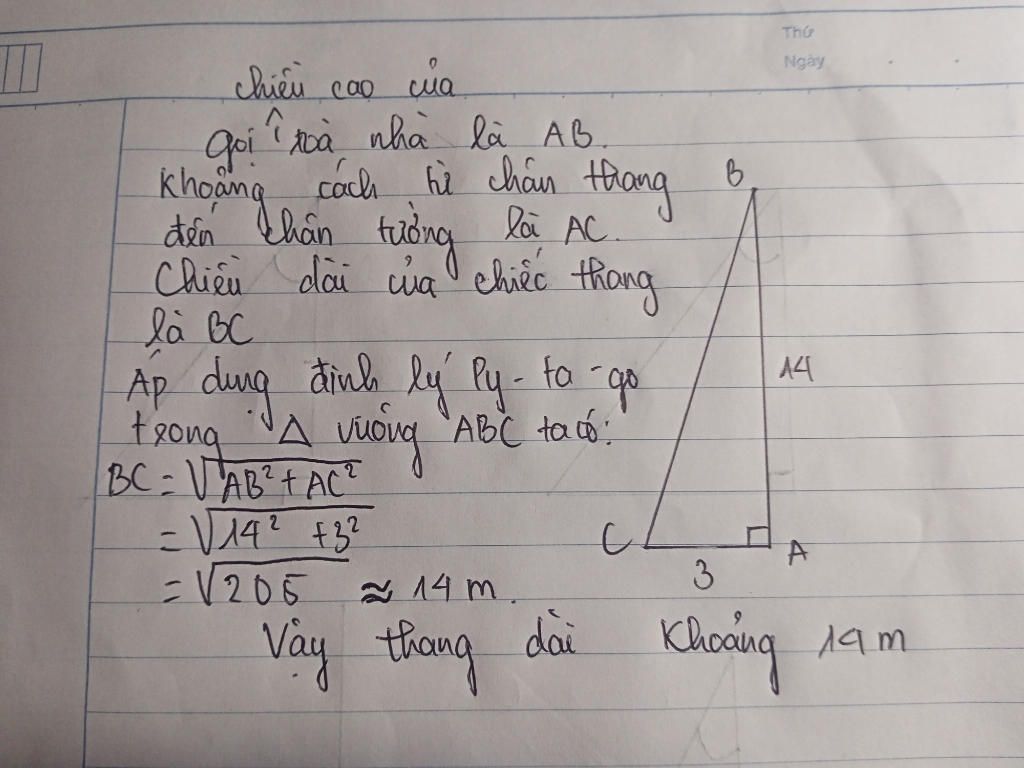 Thứ
Ngày
chiều cao của
gọi ^ toà nhà là AB.
Khoảng cách từ chân thang
đến chân tường là AC.
Chiều dài của chiếc thang
là BC
Áp dụng định lý Py-ta-go
trong Δ vuông ABC ta có:
BC = √AB² + AC²
= √14² + 3²
= √205 ≈ 14 m.
Vậy thang dài khoảng 14 m
B
14
C
A
3